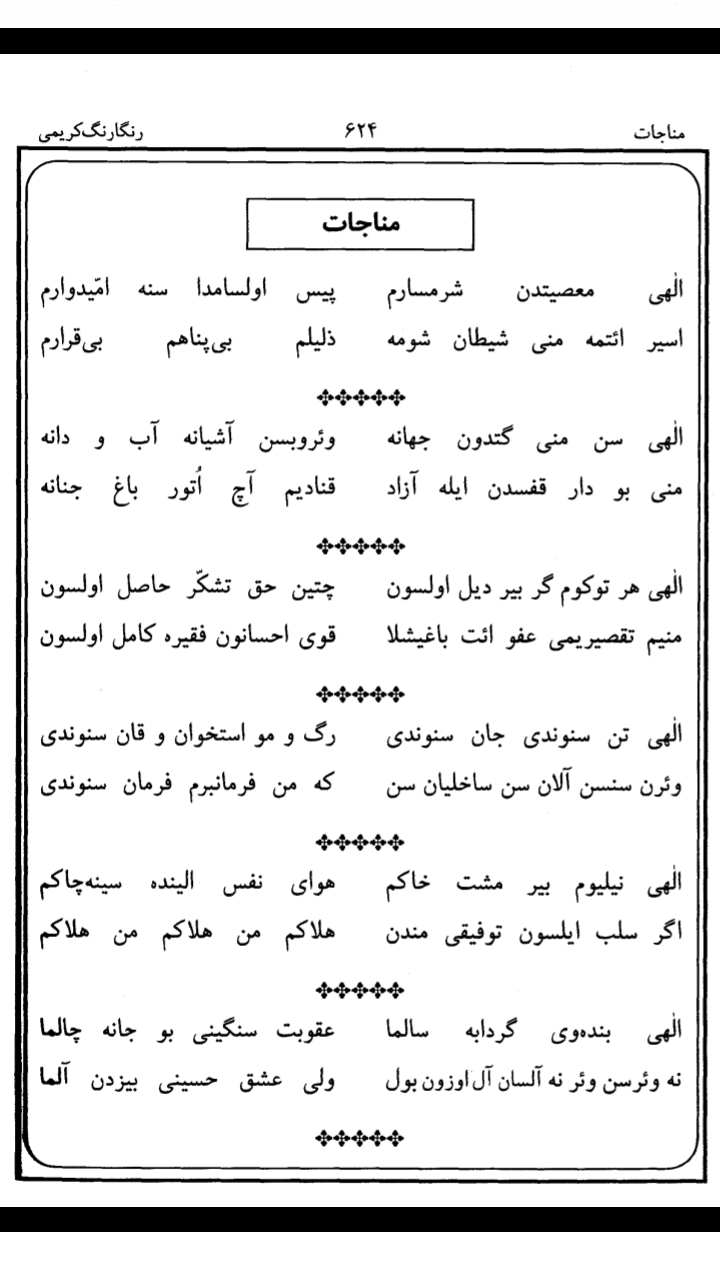 مناجات ۶۲۴ رنگارنگ‌کریمی
مناجات
الٰهی معصیتدن شرمسارم پیس اولسامدا سنه امّیدوارم
اسیر ائتمه منی شیطان شومه ذلیلم بی‌پناهم بی‌قرارم
الٰهی سن منی گتدون جهانه وئروبسن آشیانه آب و دانه
منی بو دار قفسدن ایله آزاد قنادیم آچ اُتور باغ جنانه
الٰهی هر توکوم گر بیر دیل اولسون چتین حق تشکّر حاصل اولسون
منیم تقصیریمی عفو ائت باغیشلا قوی احسانون فقیره کامل اولسون
الٰهی تن سنوندی جان سنوندی رگ و مو استخوان و قان سنوندی
وئرن سنسن آلان سن ساخلیان سن که من فرمانبرم فرمان سنوندی
الٰهی نیلیوم بیر مشت خاکم هوای نفس الینده سینه‌چاکم
اگر سلب ایلسون توفیقی مندن هلاکم من هلاکم من هلاکم
الٰهی بنده‌وی گردابه سالما عقوبت سنگینی بو جانه چالما
نه وئرسن وئر نه آلسان آل اوزون بول ولی عشق حسینی بیزدن آلما